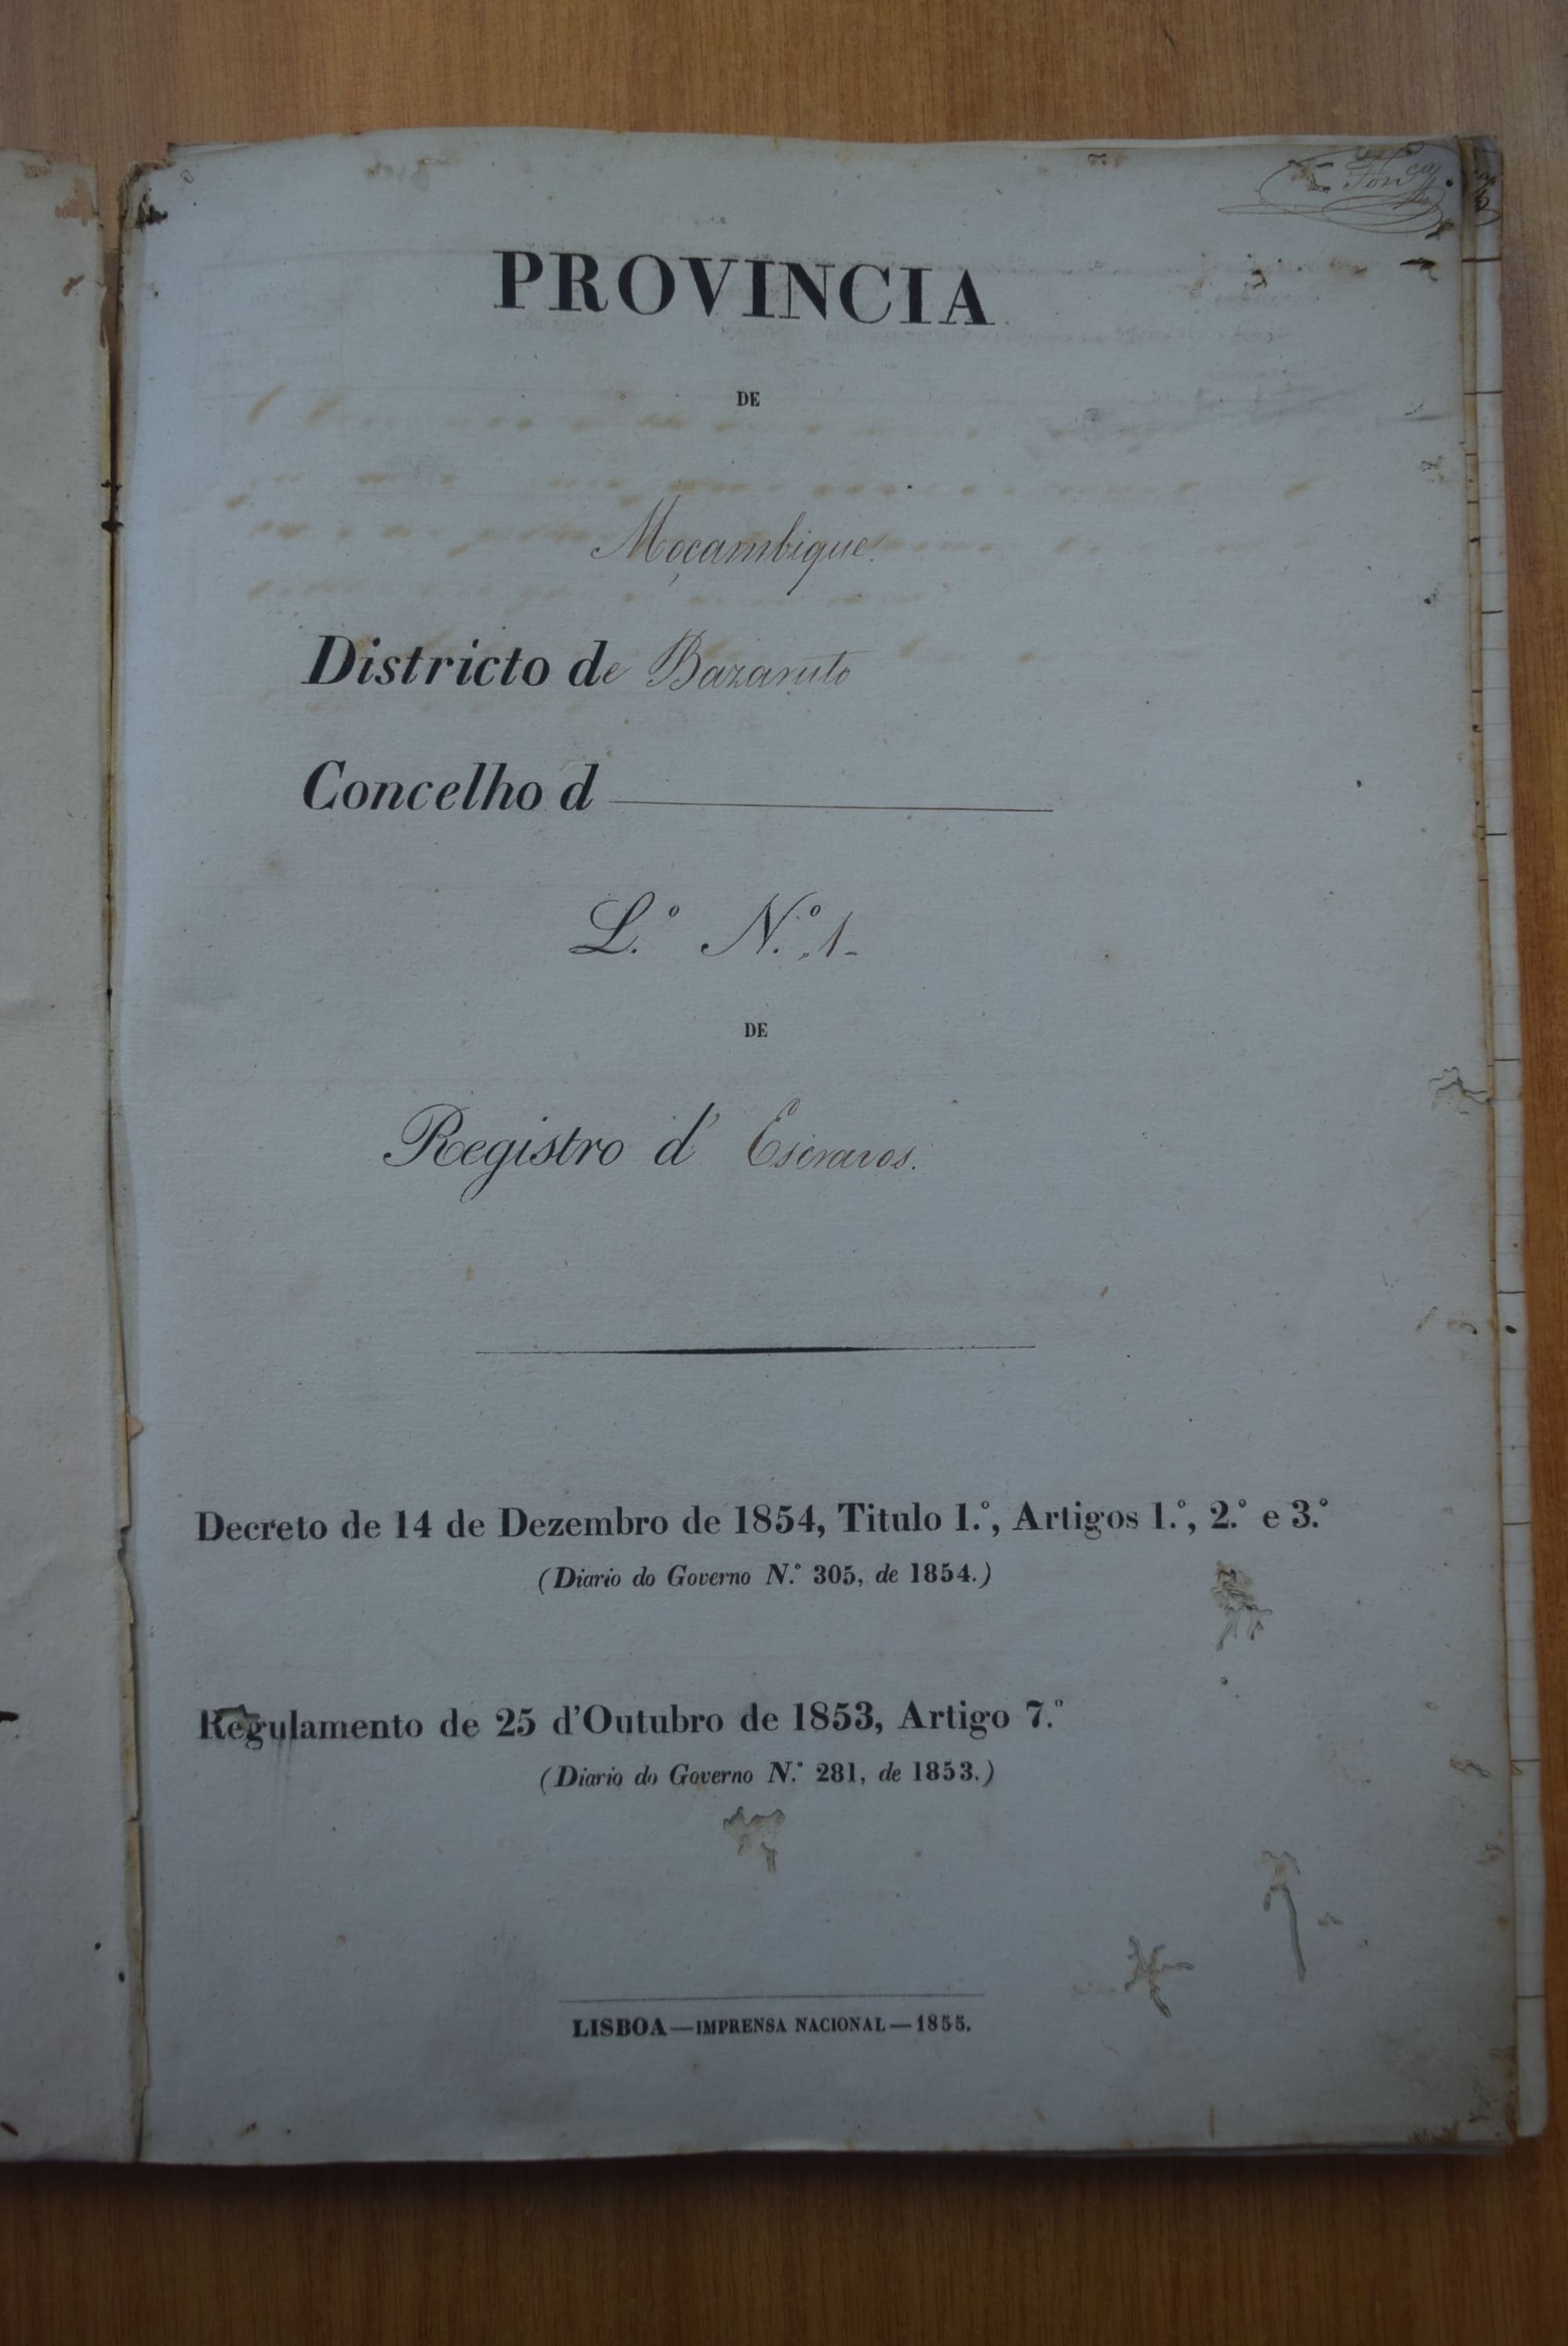 PROVINCIA
DE
Moçambique.
Districto de Bazaruto
Concelho d
L.º N.º 1-
DE
Registro d' Escravos.
Decreto de 14 de Dezembro de 1854, Titulo 1.º, Artigos 1.º, 2.º e 3.º
(Diario do Governo N.º 305, de 1854.)
Regulamento de 25 d'Outubro de 1853, Artigo 7.º
(Diario do Governo N.º 281, de 1853.)
LISBOA—IMPRENSA NACIONAL—1855.